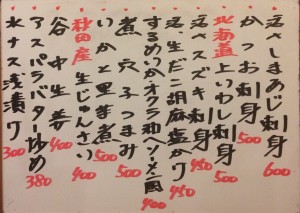 活さしまあじ刺身 600
かつお刺身 500
北海道 上いわし刺身 500
活スズキ刺身 450
活、生だこ胡麻塩かけ 450
するめいかオクラ和へソーメン風 400
煮穴子つまみ 500
いかと里芋煮 500
秋田産 生じゅんさい 400
谷中生姜 400
アスパラバター炒め 380
水ナス浅漬け 300